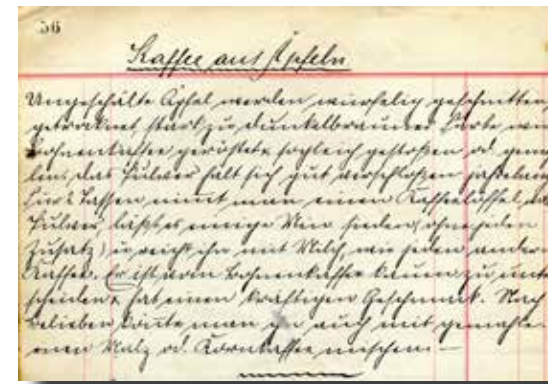 56
Kaffee aus Äpfeln
Ungeschälte Äpfel werden würfelig geschnitten,
getrocknet, stark zu dunkelbrauner Farbe wie
Bohnenkaffee geröstet & sogleich gestoßen od. gemah
len; das Pulver hält sich gut verschlossen jahrelang.
Für 2 Tassen nimmt man einen Kaffeelöffel
Pulver, läßt es einige Min sieden (ohne jeden
Zusatz) u reicht ihn mit Milch, wie jeden andern
Kaffee. Er ist vom Bohnenkaffee kaum zu unter
scheiden & hat einen kräftigen Geschmack. Nach
Belieben könnte man ihn auch mit gemahle
nen Malz od. Kornkaffee mischen. —